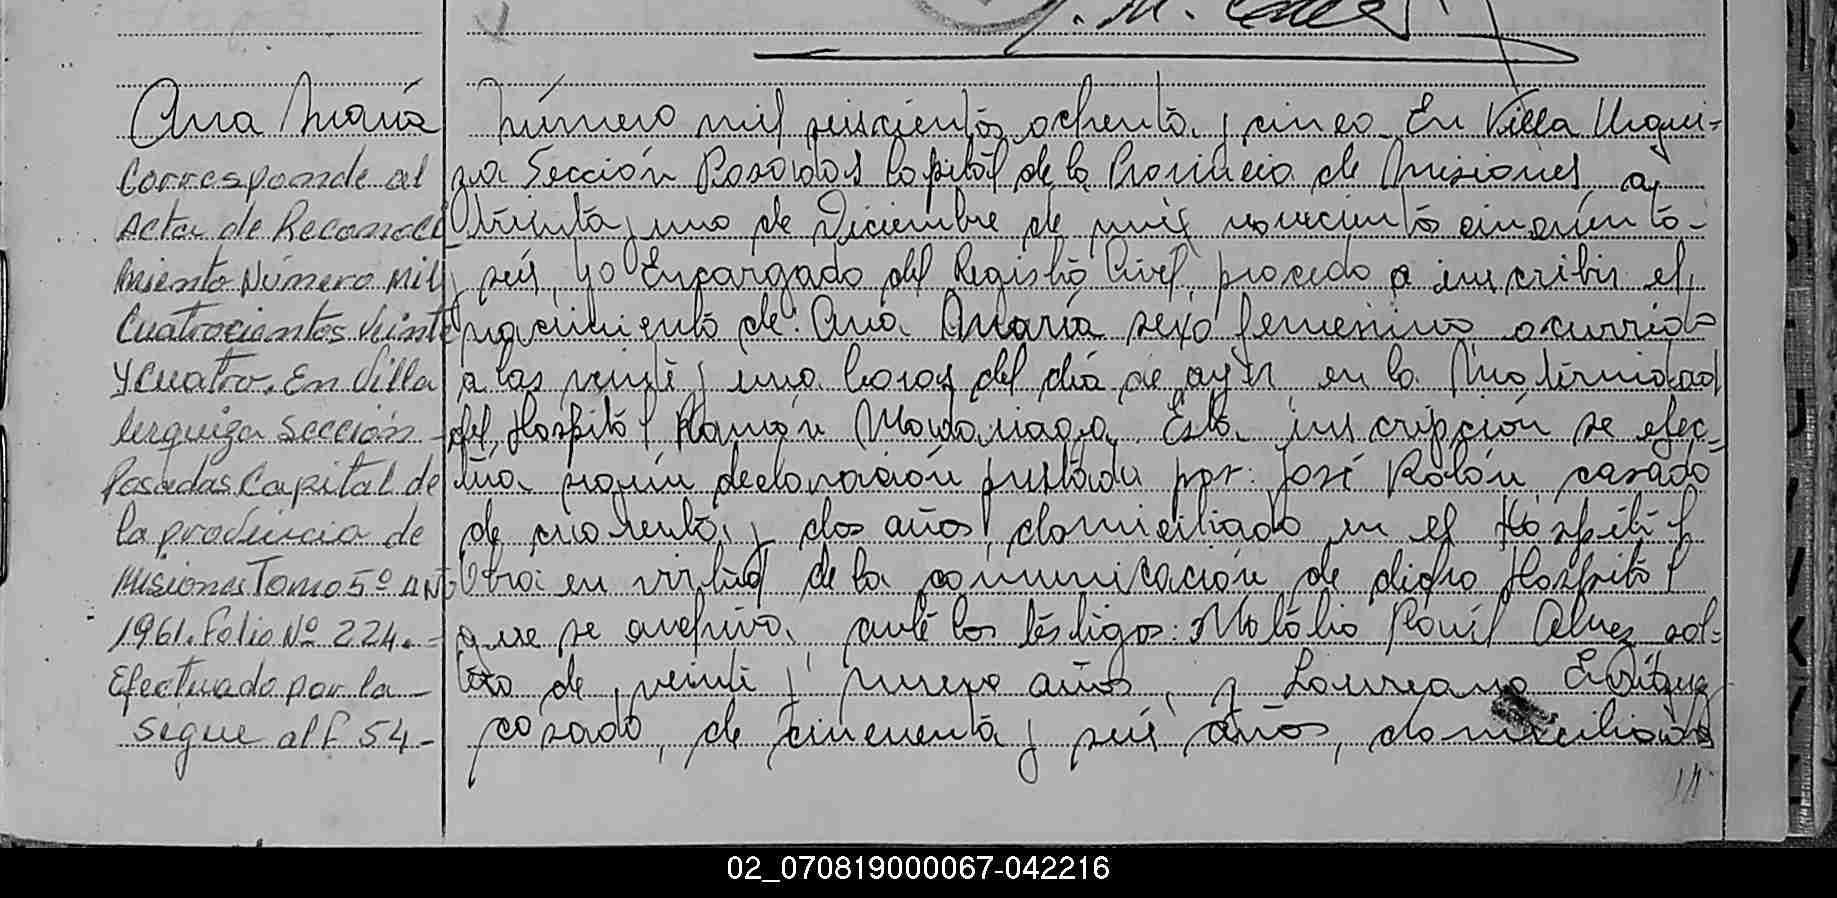 J. M.
Ana María
Corresponde al
Acta de Reconoci
miento Número Mil
Cuatrocientos Veinte
y Cuatro. En Villa
Urquiza Sección
Posadas Capital de
la provincia de
Misiones Tomo 5º año
1961. Folio Nº 224.-
Efectuado por la -
Sigue al F 54 -
Número mil seiscientos ochenta y cinco - En Villa Urqui-
za Sección Posadas Capital de la Provincia de Misiones, a
treinta y uno de Diciembre de mil novecientos cincuenta-
y seis, yo Encargado del Registro Civil, procedo a inscribir el
nacimiento de: Ana María sexo femenino ocurrido
a las veinte y una horas del día de ayer en la Maternidad
del Hospital Ramón Madariaga. Esta inscripción se efec-
túa según declaración prestada por: José Rolón, casado
de cuarenta y dos años, domiciliado en el Hospital
Obra en virtud de la comunicación de dicho Hospital
que se archiva, ante los testigos: Natalio Raúl Alvez sol-
tero de veinte y nueve años, y Laureano
casado, de cincuenta y seis años, domiciliados
02_070819000067-042216